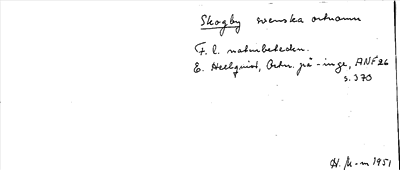 Skogby svenska ortnamn
F. l. naturbeteckn.
E. Hellquist, Ortn. på -inge, ANF 26
s. 370
H. M-m 1951